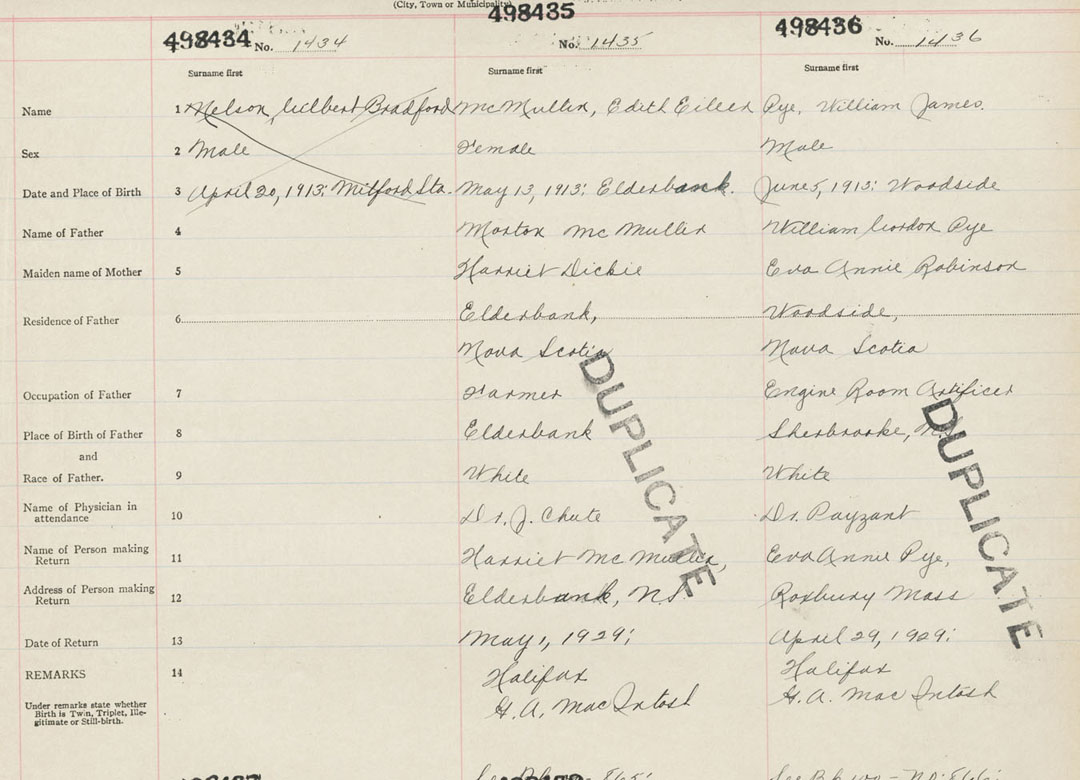 (City, Town or Municipality)
498434 No. 1434
498435
No. 1435
498436
No. 1436
Surname first
Surname first
Surname first
Name 1 Nelson, Wilbert Bradford McMullin, Edith Eileen Pye, William James.
Sex 2 Male Female Male
Date and Place of Birth 3 April 20, 1913; Milford Sta. May 13, 1913: Elderbank. June 5, 1913: Woodside
Name of Father 4 Morton McMullin William Gordon Pye
Maiden name of Mother 5 Harriet Dickie Eva Annie Robinson
Residence of Father 6 Elderbank, Woodside,
Nova Scotia Nova Scotia
Occupation of Father 7 Farmer Engine Room Artificer
Place of Birth of Father 8 Elderbank Sherbrooke, N.S.
and
Race of Father. 9 White White
Name of Physician in
attendance 10 Dr. J. Chute Dr. Payzant
Name of Person making
Return 11 Harriet McMullin, Eva Annie Pye,
Address of Person making
Return 12 Elderbank, N.S. Roxbury Mass
Date of Return 13 May 1, 1929; April 29, 1929;
REMARKS 14 Halifax Halifax
H.A. MacIntosh H.A. MacIntosh
Under remarks state whether
Birth is Twin, Triplet, Ille-
gitimate or Still-birth.
DUPLICATE
DUPLICATE